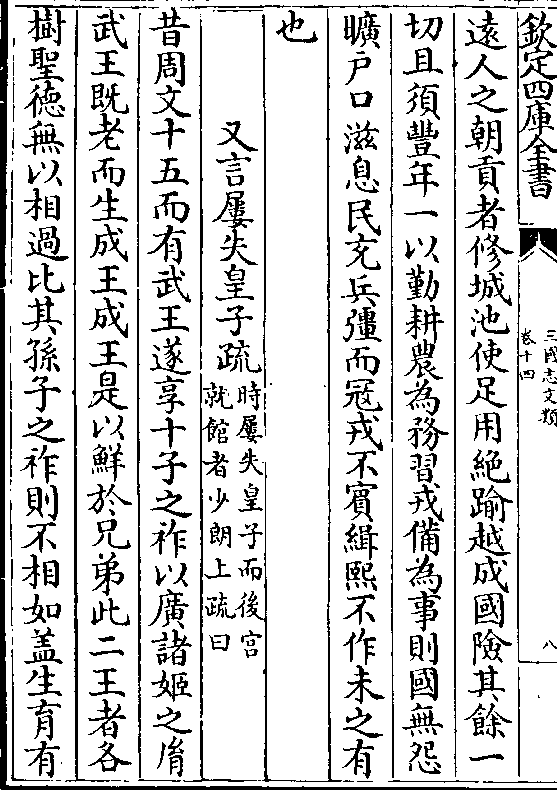 欽定四庫全書
三國志文類
卷十四
八
遠人之朝貢者修城池使足用絶踰越成國險其餘一
切且須豐年一以勤耕農為務習戎備為事則國無怨
曠戶口滋息民充兵彊而冦戎不賔緝熙不作未之有
也
又言屢失皇子疏
時屢失皇子而後宫
就館者少朗上疏曰
昔周文十五而有武王遂享十子之祚以廣諸姬之胤
武王既老而生成王成王是以鮮於兄弟此二王者各
樹聖德無以相過比其孫子之祚則不相如盖生育有